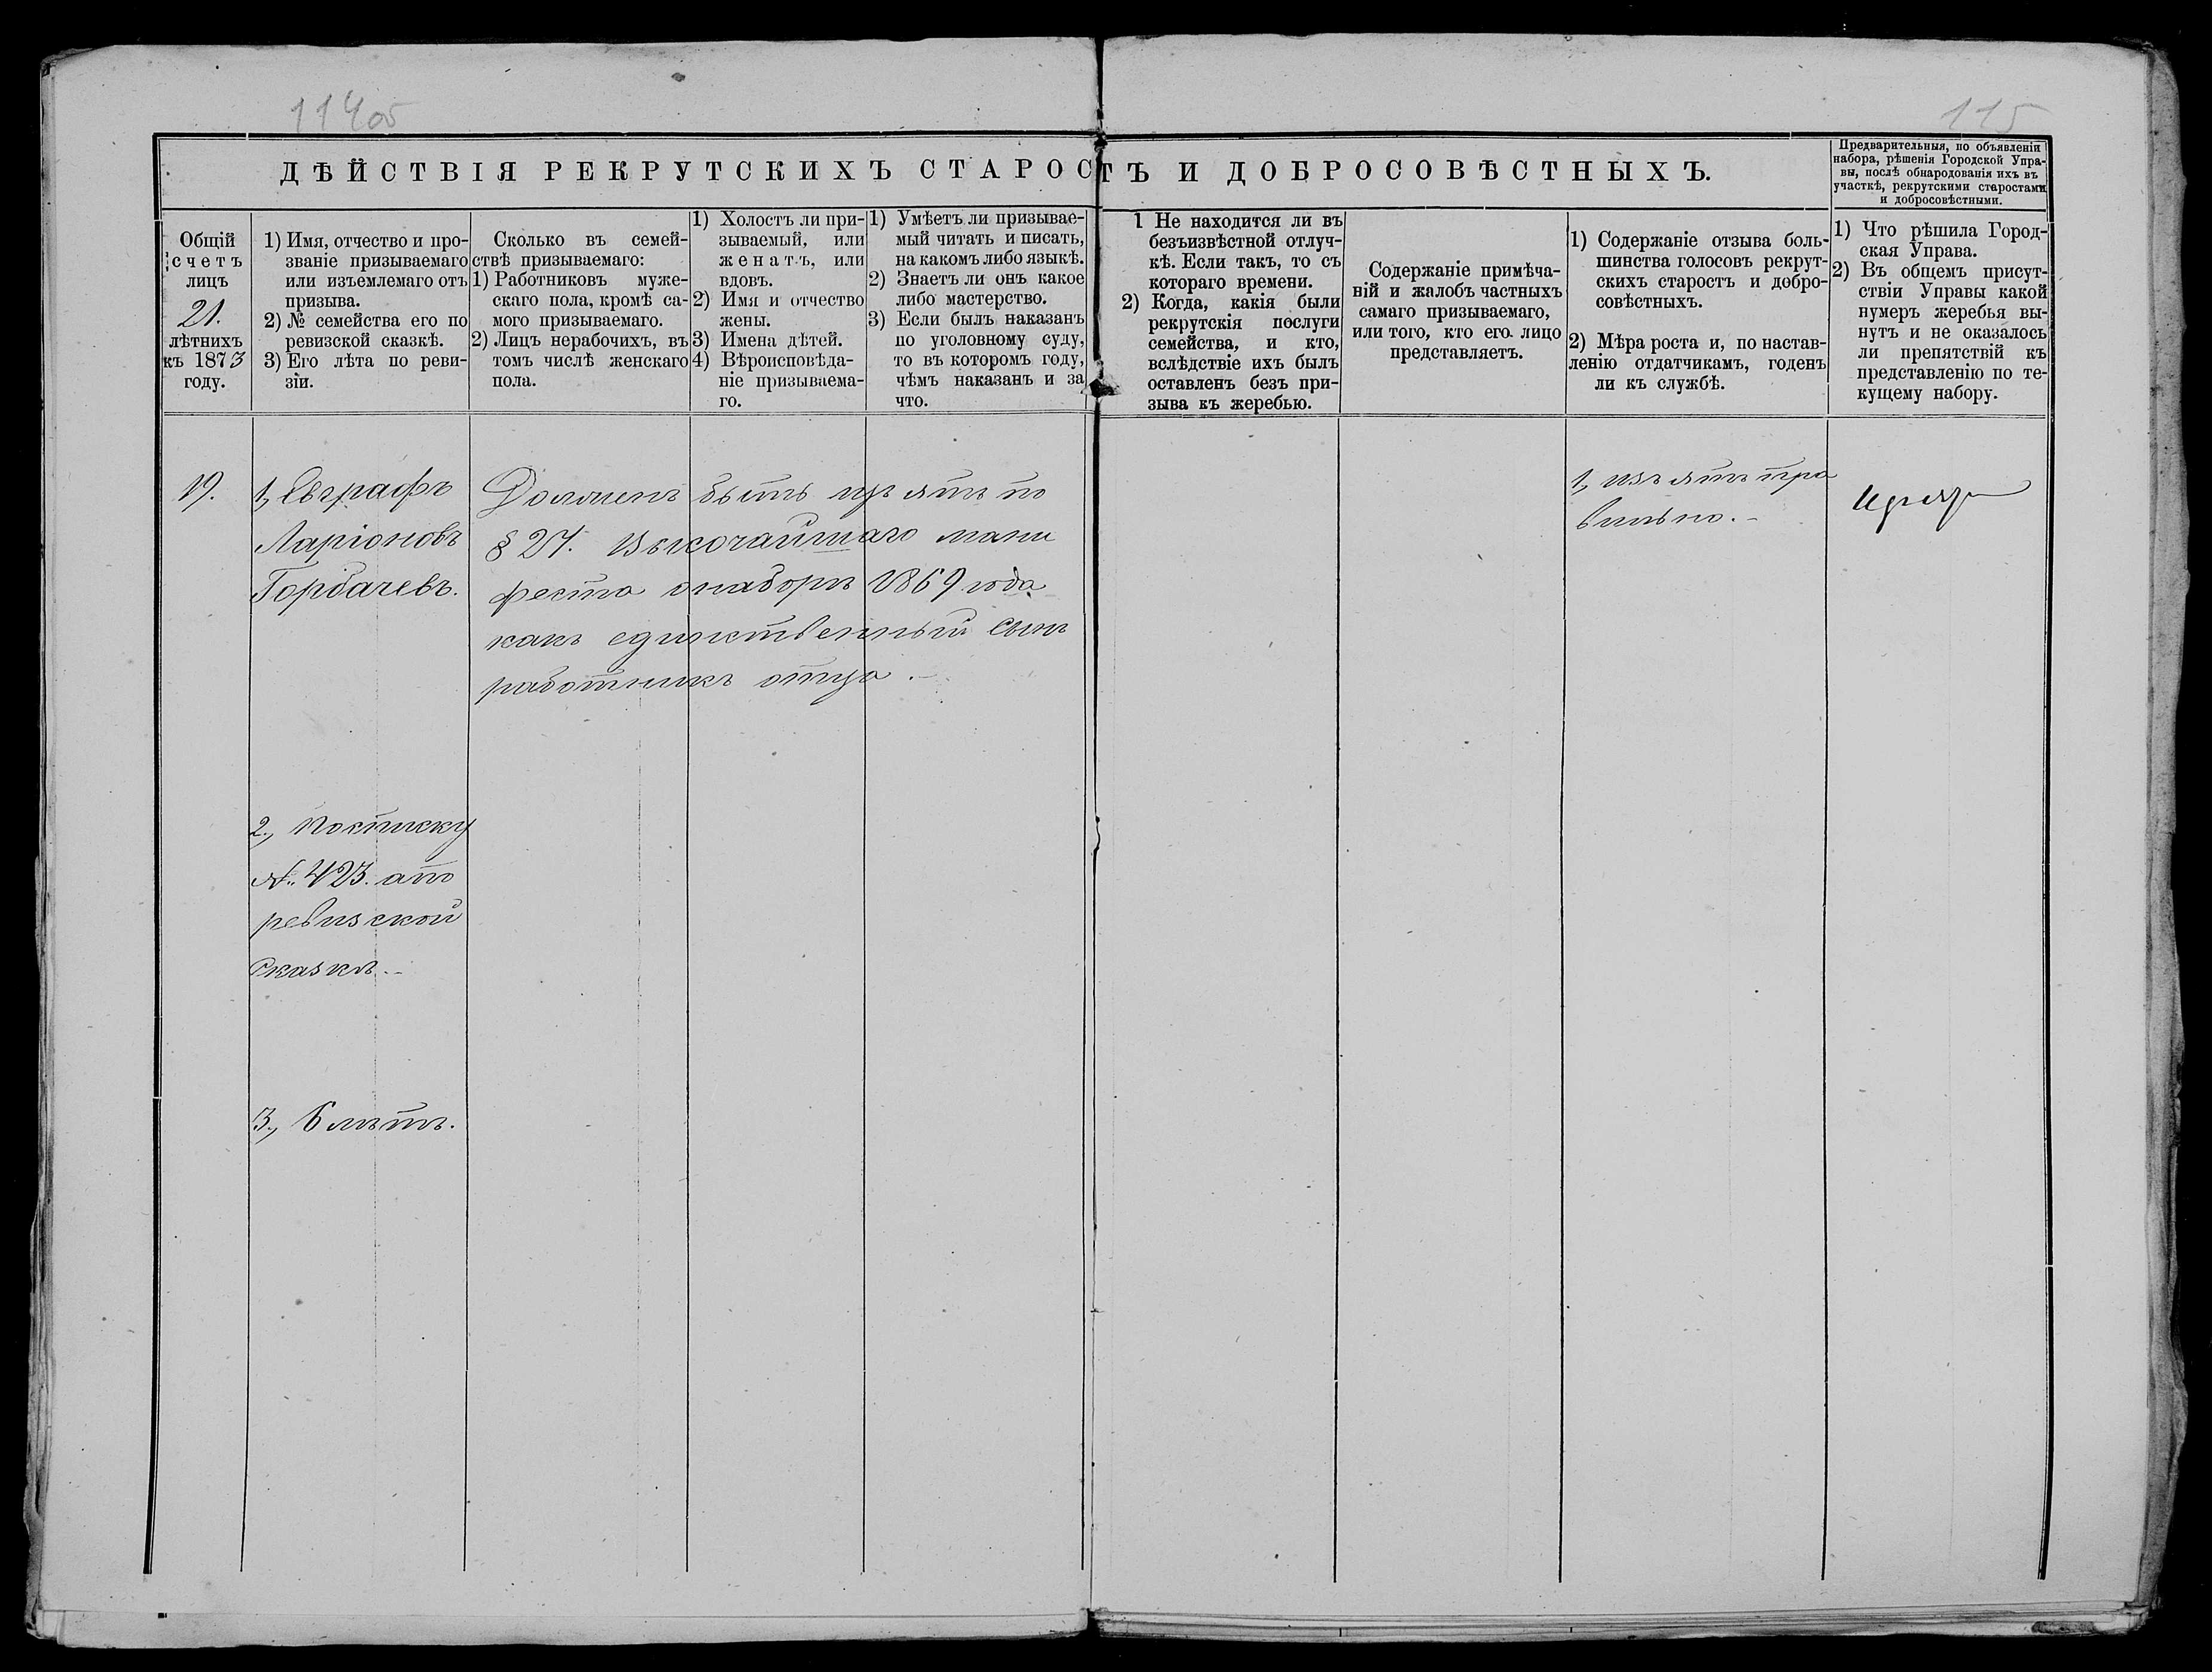 114об
115
ДѢЙСТВІЯ РЕКРУТСКИХЪ СТАРОСТЪ И ДОБРОСОВѢСТНЫХЪ.
Предварительныя, по объявленіи
набора, рѣшенія Городской Упра-
вы, послѣ обнародованія ихъ въ
участкѣ, рекрутскими старостами
и добросовѣстными.
Общій
счетъ
лицъ
21.
лѣтнихъ
къ 1873
году.
1) Имя, отчество и про-
званіе призываемаго
или изъемлемаго отъ
призыва.
2) № семейства его по
ревизской сказкѣ.
3) Его лѣта по реви-
зіи.
Сколько въ семей-
ствѣ призываемаго:
1) Работниковъ муже-
скаго пола, кромѣ са-
мого призываемаго.
2) Лицъ нерабочихъ, въ
томъ числѣ женскаго
пола.
1) Холостъ ли при-
зываемый, или
женатъ, или
вдовъ.
2) Имя и отчество
жены.
3) Имена дѣтей.
4) Вѣроисповѣда-
ніе призываема-
го.
1) Умѣетъ ли призывае-
мый читать и писать,
на какомъ либо языкѣ.
2) Знаетъ ли онъ какое
либо мастерство.
3) Если былъ наказанъ
по уголовному суду,
то въ которомъ году,
чѣмъ наказанъ и за
что.
1 Не находится ли въ
безъизвѣстной отлуч-
кѣ. Если такъ, то съ
котораго времени.
2) Когда, какія были
рекрутскія послуги
семейства, и кто,
вслѣдствіе ихъ былъ
оставленъ безъ при-
зыва къ жеребью.
Содержаніе примѣча-
ній и жалобъ частныхъ
самаго призываемаго,
или того, кто его лицо
представляетъ.
1) Содержаніе отзыва боль-
шинства голосовъ рекрут-
скихъ старостъ и добро-
совѣстныхъ.
2) Мѣра роста и, по настав-
ленію отдатчикамъ, годенъ
ли къ службѣ.
1) Что рѣшила Город-
ская Управа.
2) Въ общемъ присут-
ствіи Управы какой
нумеръ жеребья вы-
нутъ и не оказалось
ли препятствій къ
представленію по те-
кущему набору.
19.
1, Евграфъ
Ларіоновъ
Горбачевъ.
2., По списку
№. 423. а по
ревизской
сказкѣ.
3., 6 лѣтъ.
Долженъ быть изъятъ по
§ 27. Высочайшаго мани
феста о наборѣ 1869 года
какъ единственный сынъ
работникъ отца.
1, изъятъ пра
вильно.